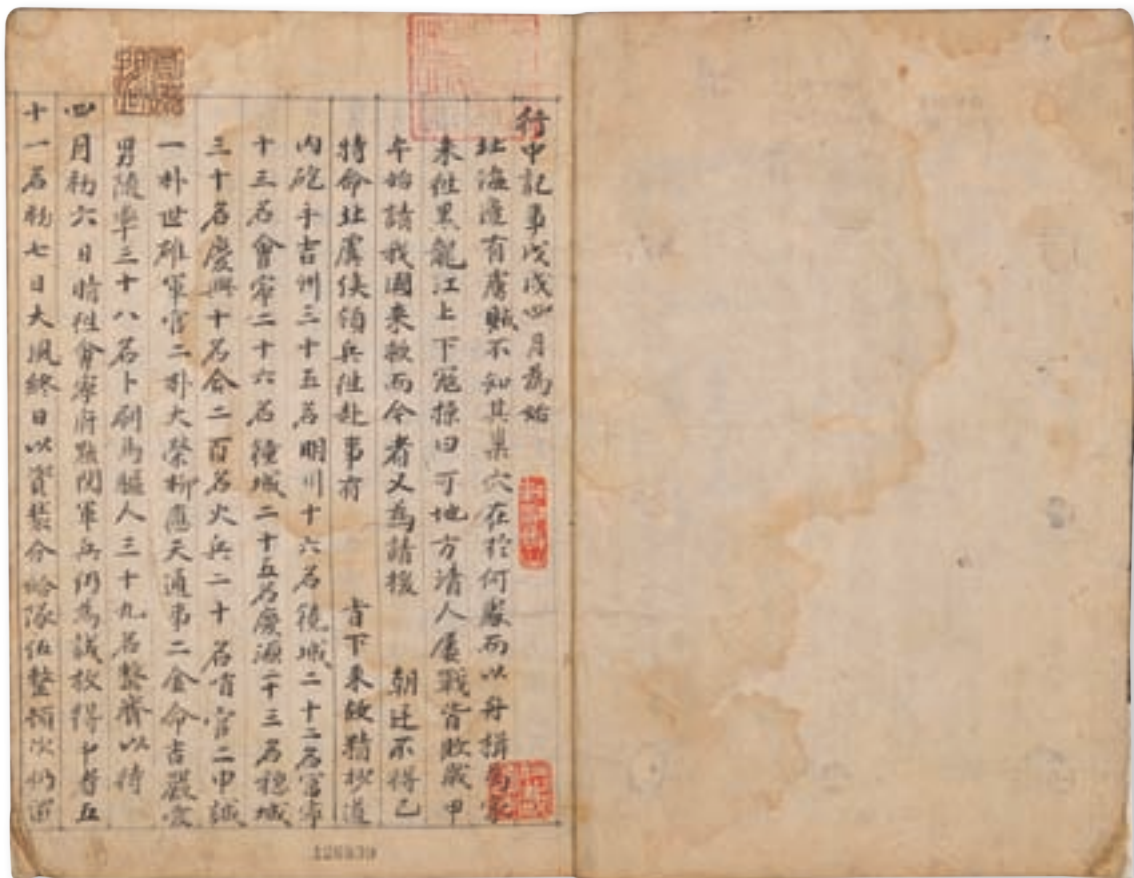 行中記事戊戌四月爲始
北海邊有虜賊不知其巢穴在於何處而以舟楫爲家
來徃黑龍江上下冦掠曰可地方清人屢戰皆敗歲甲
午始請我國來救而今者又爲請援 朝廷不得已
特命北虞侯領兵徃赴事有 旨下來故精抄道
內砲手吉州三十五名明川十六名鏡城二十二名富寧
十三名會寧二十六名鍾城二十五名慶源二十三名穩城
三十名慶興十名合二百名火兵二十名哨官二申誠
一朴世雄軍官二朴大榮柳應天通事二金命吉嚴愛
男隨率三十八名卜刷馬驅人三十九名整齊以待
四月初六日晴徃會寧府點閱軍兵仍爲議放得中者五
十一名初七日大風終日以資裝分給隊伍整頓次仍留
126939